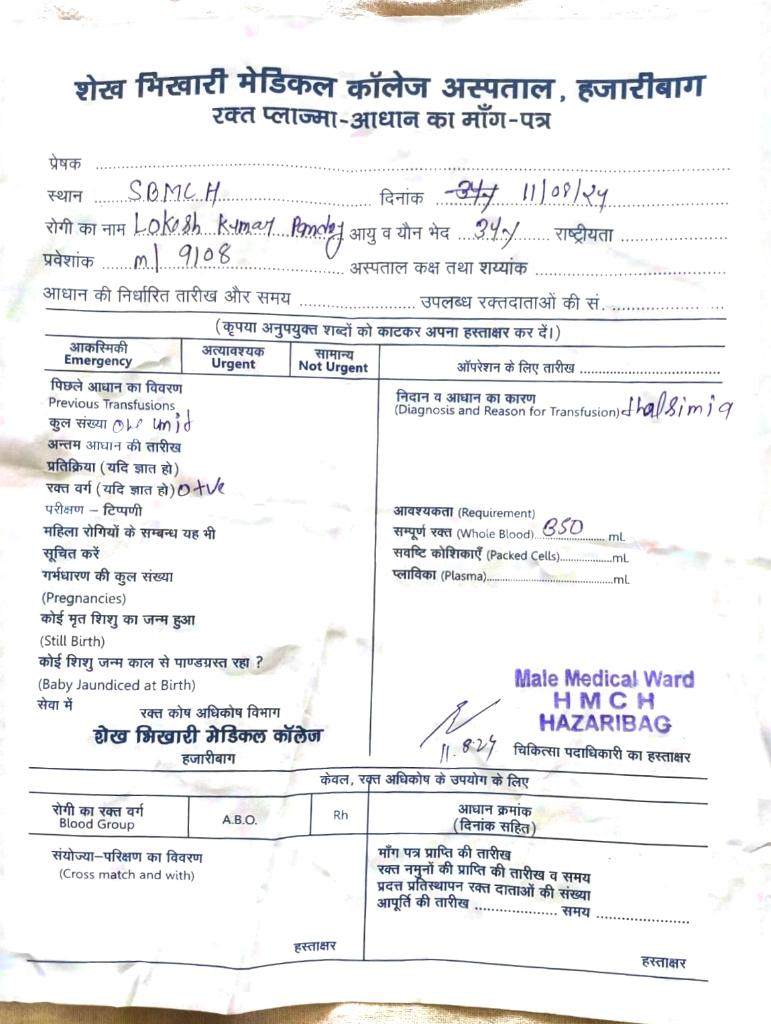 शेख भिखारी मेडिकल कॉलेज अस्पताल, हजारीबाग
रक्त प्लाज्मा-आधान का माँग-पत्र
प्रेषक
स्थान SBMCH दिनांक 34y 11/08/24
रोगी का नाम Lokesh Kumar Pandey आयु व यौन भेद 34y राष्ट्रीयता
प्रवेशांक m/ 9108 अस्पताल कक्ष तथा शय्यांक
आधान की निर्धारित तारीख और समय उपलब्ध रक्तदाताओं की सं.
(कृपया अनुपयुक्त शब्दों को काटकर अपना हस्ताक्षर कर दें।)
आकस्मिकी अत्यावश्यक सामान्य
Emergency Urgent Not Urgent ऑपरेशन के लिए तारीख
पिछले आधान का विवरण
Previous Transfusions
कुल संख्या one unit
अन्तम आधान की तारीख
प्रतिक्रिया (यदि ज्ञात हो)
रक्त वर्ग (यदि ज्ञात हो) O+ve
परीक्षण – टिप्पणी
महिला रोगियों के सम्बन्ध यह भी
सूचित करें
गर्भधारण की कुल संख्या
(Pregnancies)
कोई मृत शिशु का जन्म हुआ
(Still Birth)
कोई शिशु जन्म काल से पाण्डग्रस्त रहा ?
(Baby Jaundiced at Birth)
सेवा में
रक्त कोष अधिकोष विभाग
शेख भिखारी मेडिकल कॉलेज
हजारीबाग
निदान व आधान का कारण
(Diagnosis and Reason for Transfusion) thalsimia
आवश्यकता (Requirement)
सम्पूर्ण रक्त (Whole Blood) 350 ml.
सवष्टि कोशिकाएँ (Packed Cells) ml.
प्लाविका (Plasma) ml.
Male Medical Ward
HMCH
HAZARIBAG
11.8.24 चिकित्सा पदाधिकारी का हस्ताक्षर
केवल, रक्त अधिकोष के उपयोग के लिए
रोगी का रक्त वर्ग
Blood Group A.B.O. Rh
आधान क्रमांक
(दिनांक सहित)
संयोज्या–परिक्षण का विवरण
(Cross match and with)
हस्ताक्षर
माँग पत्र प्राप्ति की तारीख
रक्त नमुनों की प्राप्ति की तारीख व समय
प्रदत्त प्रतिस्थापन रक्त दाताओं की संख्या
आपूर्ति की तारीख समय
हस्ताक्षर